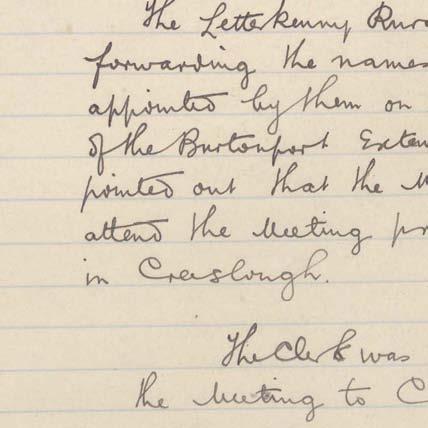 The Letterkenny Rura
forwarding the names
appointed by them on
of the Burtonport Exten
pointed out that the M
attend the Meeting pr
in Creeslough.
The Clerk was
the Meeting to C